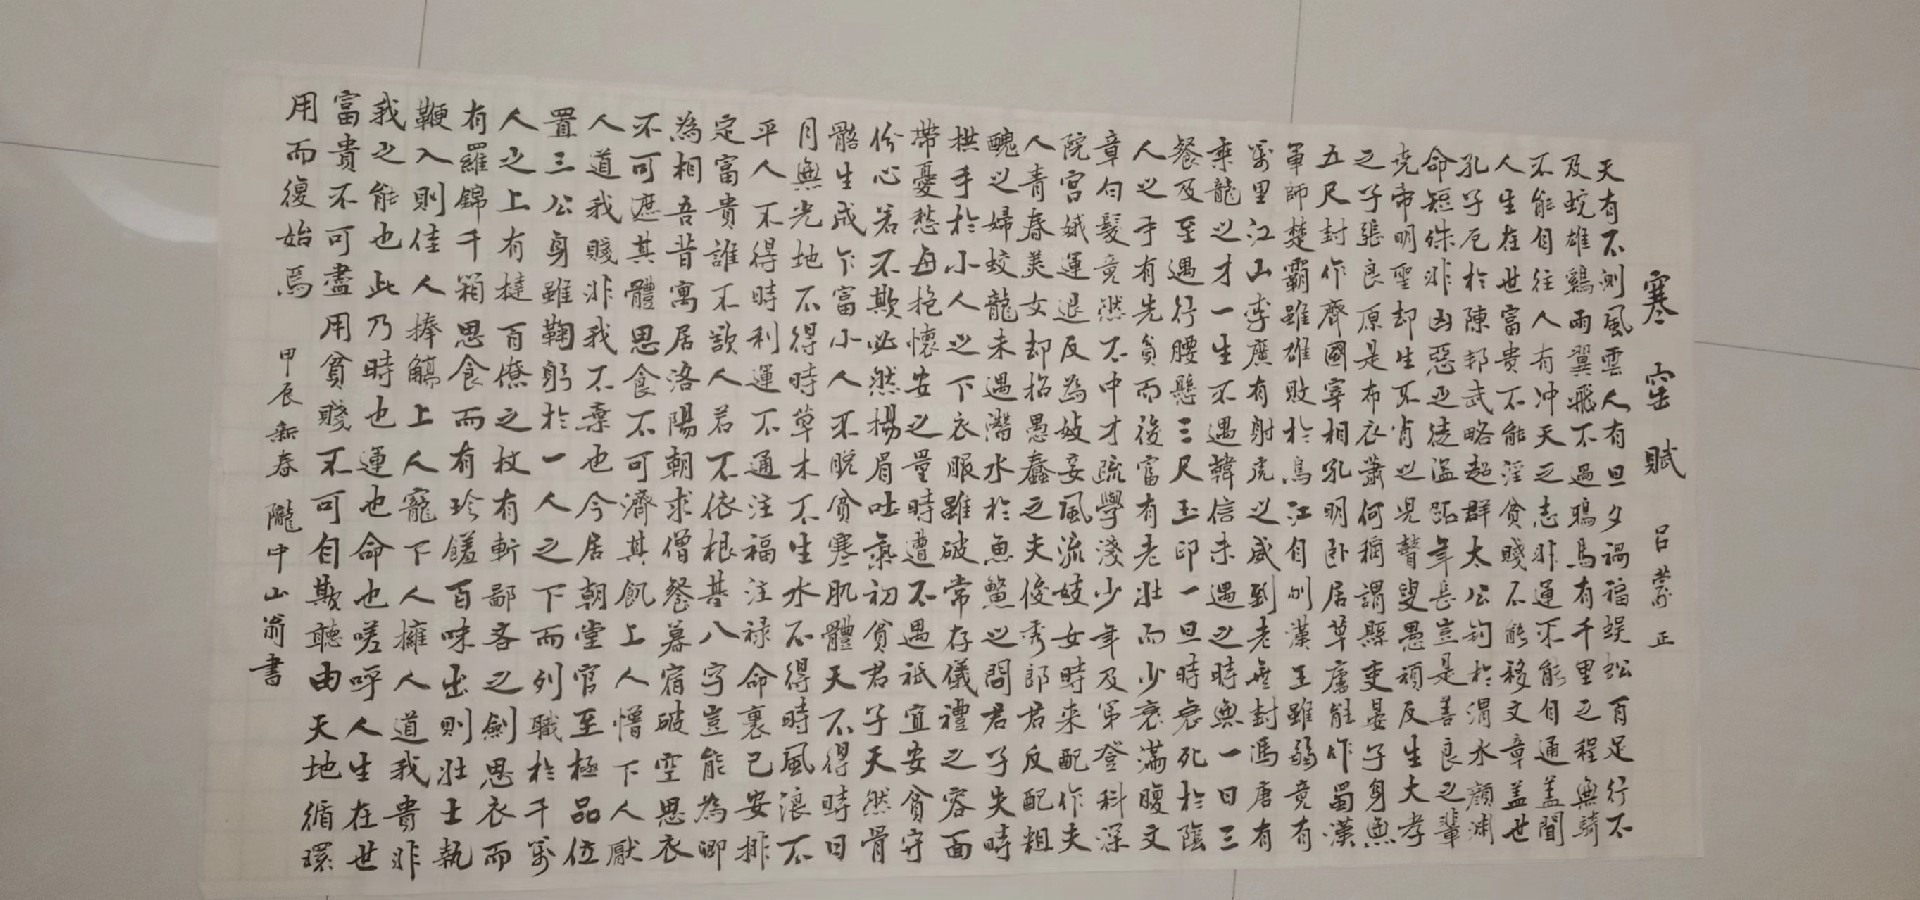 寒窑賦 吕蒙正
天有不測風雲人有旦夕禍福蜈蚣百足行不
及蛇雄鷄兩翼飛不過鴉馬有千里之程無騎
不能自往人有冲天之志非運不能自通蓋聞
人生在世富貴不能淫貧賤不能移文章蓋世
孔子厄於陳邦武略超群太公釣於渭水顏淵
命短殊非凶惡之徒盜跖年長豈是善良之輩
堯帝明聖却生不肖之兒瞽叟愚頑反生大孝
之子張良原是布衣蕭何稱謂縣吏晏子身無
五尺封作齊國宰相孔明卧居草廬能作蜀漢
軍師楚霸雖雄敗於烏江自刎漢王雖弱竟有
萬里江山李廣有射虎之威到老無封馮唐有
乘龍之才一生不遇韓信未遇之時無一日三
餐及至遇行腰懸三尺玉印一旦時衰死於陰
人之手有先貧而後富有老壯而少衰滿腹文
章白髮竟然不中才疏學淺少年及第登科深
院宮娥運退反為妓妾風流妓女時來配作夫
人青春美女却招愚蠢之夫俊秀郎君反配粗
醜之婦蛟龍未遇潛水於魚鱉之間君子失時
拱手於小人之下衣服雖破常存儀禮之容面
帶憂愁每抱懷安之量時遭不遇祇宜安貧守
份心若不欺必然揚眉吐氣初貧君子天然骨
骼生成乍富小人不脫貧寒肌體天不得時日
月無光地不得時草木不生水不得時風浪不
平人不得時利運不通注福注祿命裏已安排
定富貴誰不欲人若不依根基八字豈能為卿
為相吾昔寓居洛陽朝求僧餐暮宿破窑思衣
不可遮其體思食不可濟其飢上人憎下人厭
人道我賤非我不棄也今居朝堂官至極品位
置三公身雖鞠躬於一人之下而列職於千萬
人之上有撻百僚之杖有斬鄙吝之劍思衣而
有羅錦千箱思食而有珍饈百味出則壯士執
鞭入則佳人捧觴上人寵下人擁人道我貴非
我之能也此乃時也運也命也嗟呼人生在世
富貴不可盡用貧賤不可自欺聽由天地循環
用而復始焉
甲辰新春隴中山翁書